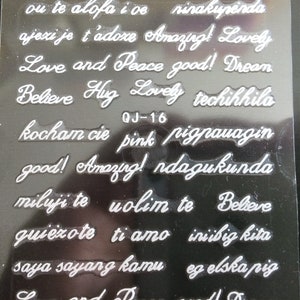 ou te alofa i oe ninakupenda
ajexi je t'adoxe Amazing! Lovely
Love and Peace good! Dream
Believe Hug Lovely techihhila
QJ-16
kocham cie pink pigpauagin
good! Amazing! ndagukunda
miluji te uolim te Believe
quiezote ti amo iniibig kita
saya sayang kamu eg elska pig
Love and Peace good! Dream